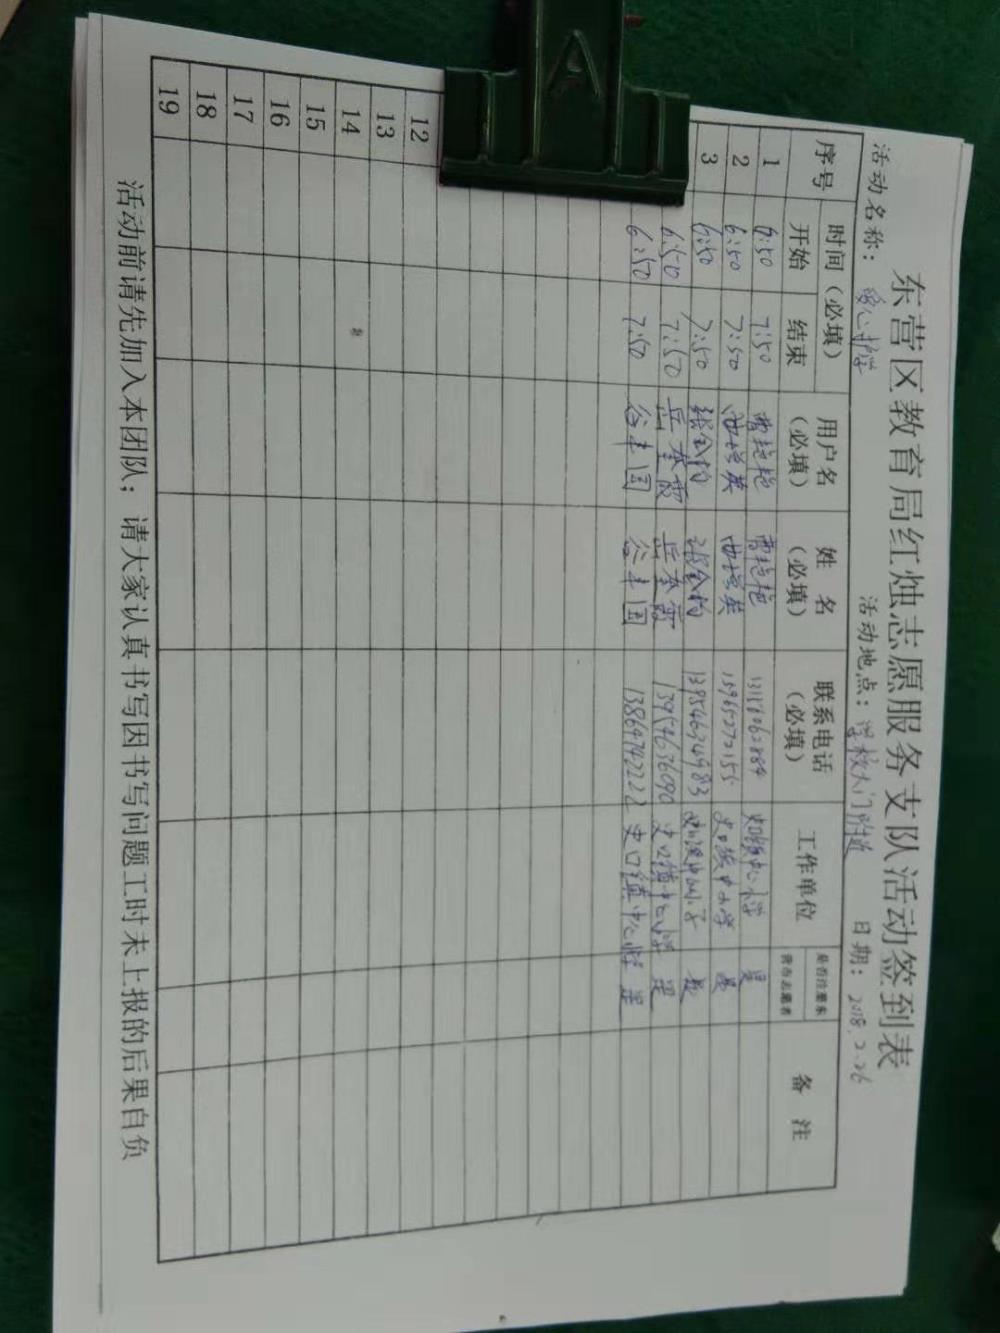 东营区教育局红烛志愿服务支队活动签到表
活动名称：爱心护学 活动地点：学校大门附近 日期：2018.2.26
序号 时间（必填） 用户名（必填） 姓名（必填） 联系电话（必填） 工作单位 是否注册东营市志愿者 备注
开始 结束
1 6:50 7:50 曹艳艳 曹艳艳 史口镇中心小学 是
2 6:50 7:50 曲增英 曲增英 15965272155 史口镇中心小学 是
3 6:50 7:50 13954624983 是
6:50 7:50 岳本霞 岳本霞 13954636090 史口镇中心小学 是
6:50 7:50 谷丰国 谷丰国 13869742222 史口镇中心小学 是
12
13
14
15
16
17
18
19
活动前请先加入本团队；请大家认真书写因书写问题工时未上报的后果自负